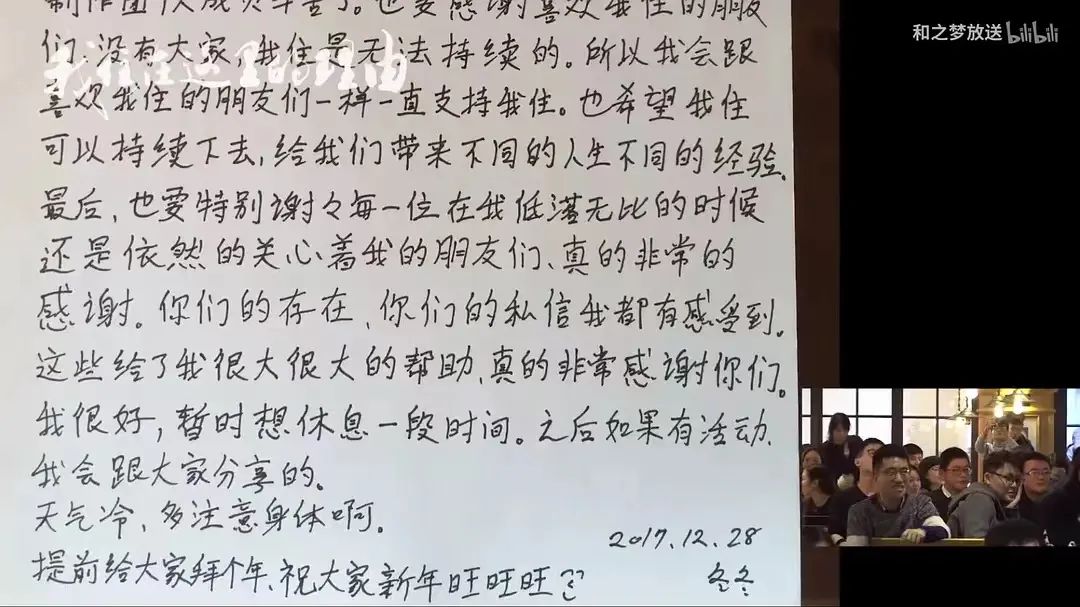 制作团队成员辛苦了。也要感谢喜欢我住的朋友
们.没有大家,我住是无法持续的。所以我会跟
喜欢我住的朋友们一样一直支持我住。也希望我住
可以持续下去,给我们带来不同的人生不同的经验。
最后,也要特别谢々每一位在我低落无比的时候
还是依然的关心着我的朋友们、真的非常的
感谢。你们的存在、你们的私信我都有感受到。
这些给了我很大很大的帮助、真的非常感谢你们。
我很好,暂时想休息一段时间。之后如果有活动、
我会跟大家分享的。
天气冷、多注意身体啊。
提前给大家拜个年、祝大家新年旺旺旺
2017.12.28
冬冬
我住在这里的理由
和之梦放送 bilibili